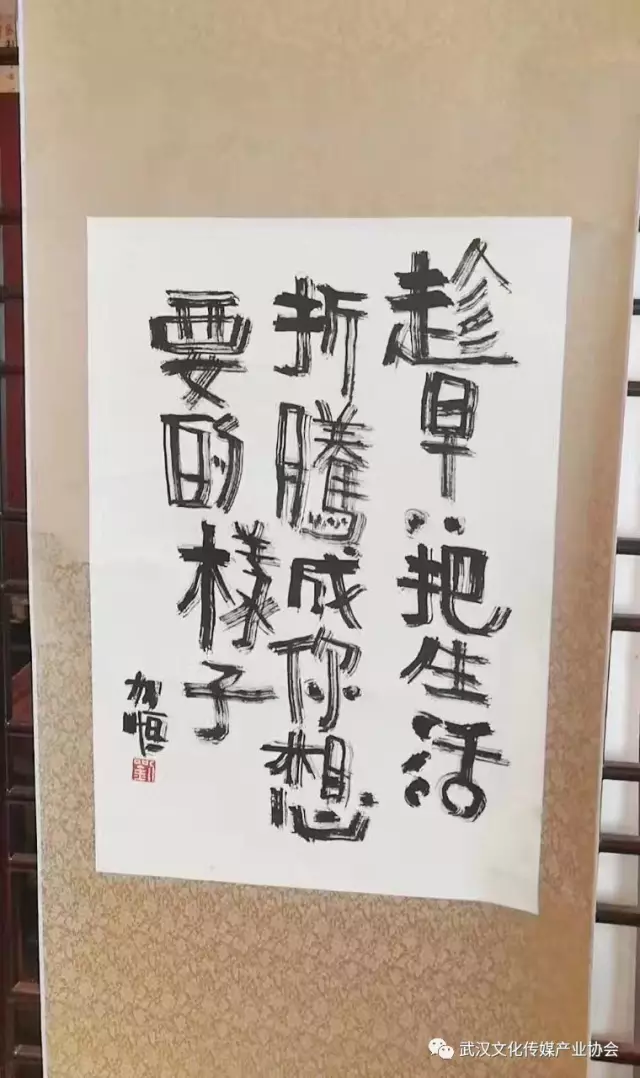 趁早:把生活
折騰成你想
要的樣子
恒
劉
武汉文化传媒产业协会